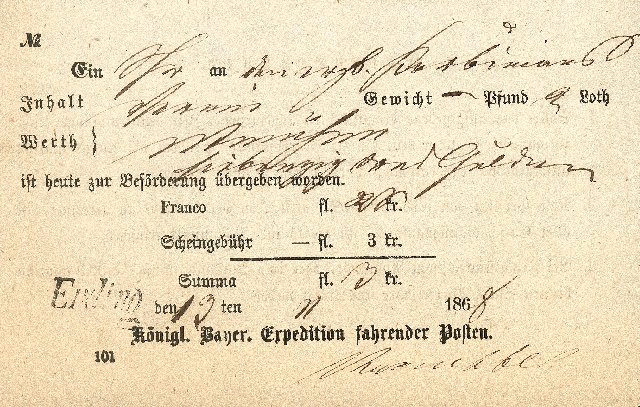 №
Ein an den erzb.
Inhalt Verein Gewicht — Pfund 2 Loth
Werth } München
siebenzig drei Gulden
ist heute zur Beförderung übergeben worden.
Franco fl. kr.
Scheingebühr — fl. 3 kr.
Summa fl. 3 kr.
Erding den 13ten 11 1868
Königl. Bayer. Expedition fahrender Posten.
101